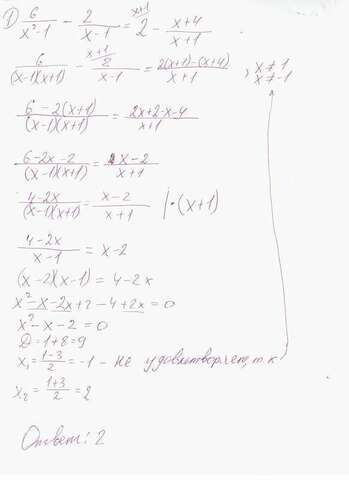 1) 6/(x²-1) - 2/(x-1) = 2 - (x+4)/(x+1)
6/((x-1)(x+1)) - 2/(x-1) = (2(x+1)-(x+4))/(x+1) , x≠1
x≠-1
(6-2(x+1))/((x-1)(x+1)) = (2x+2-x-4)/(x+1)
(6-2x-2)/((x-1)(x+1)) = (x-2)/(x+1)
(4-2x)/((x-1)(x+1)) = (x-2)/(x+1) |·(x+1)
(4-2x)/(x-1) = x-2
(x-2)(x-1) = 4-2x
x²-x-2x+2-4+2x=0
x²-x-2=0
D=1+8=9
x₁=(1-3)/2=-1 - не удовлетворяет, т.к
x₂=(1+3)/2=2
Ответ: 2